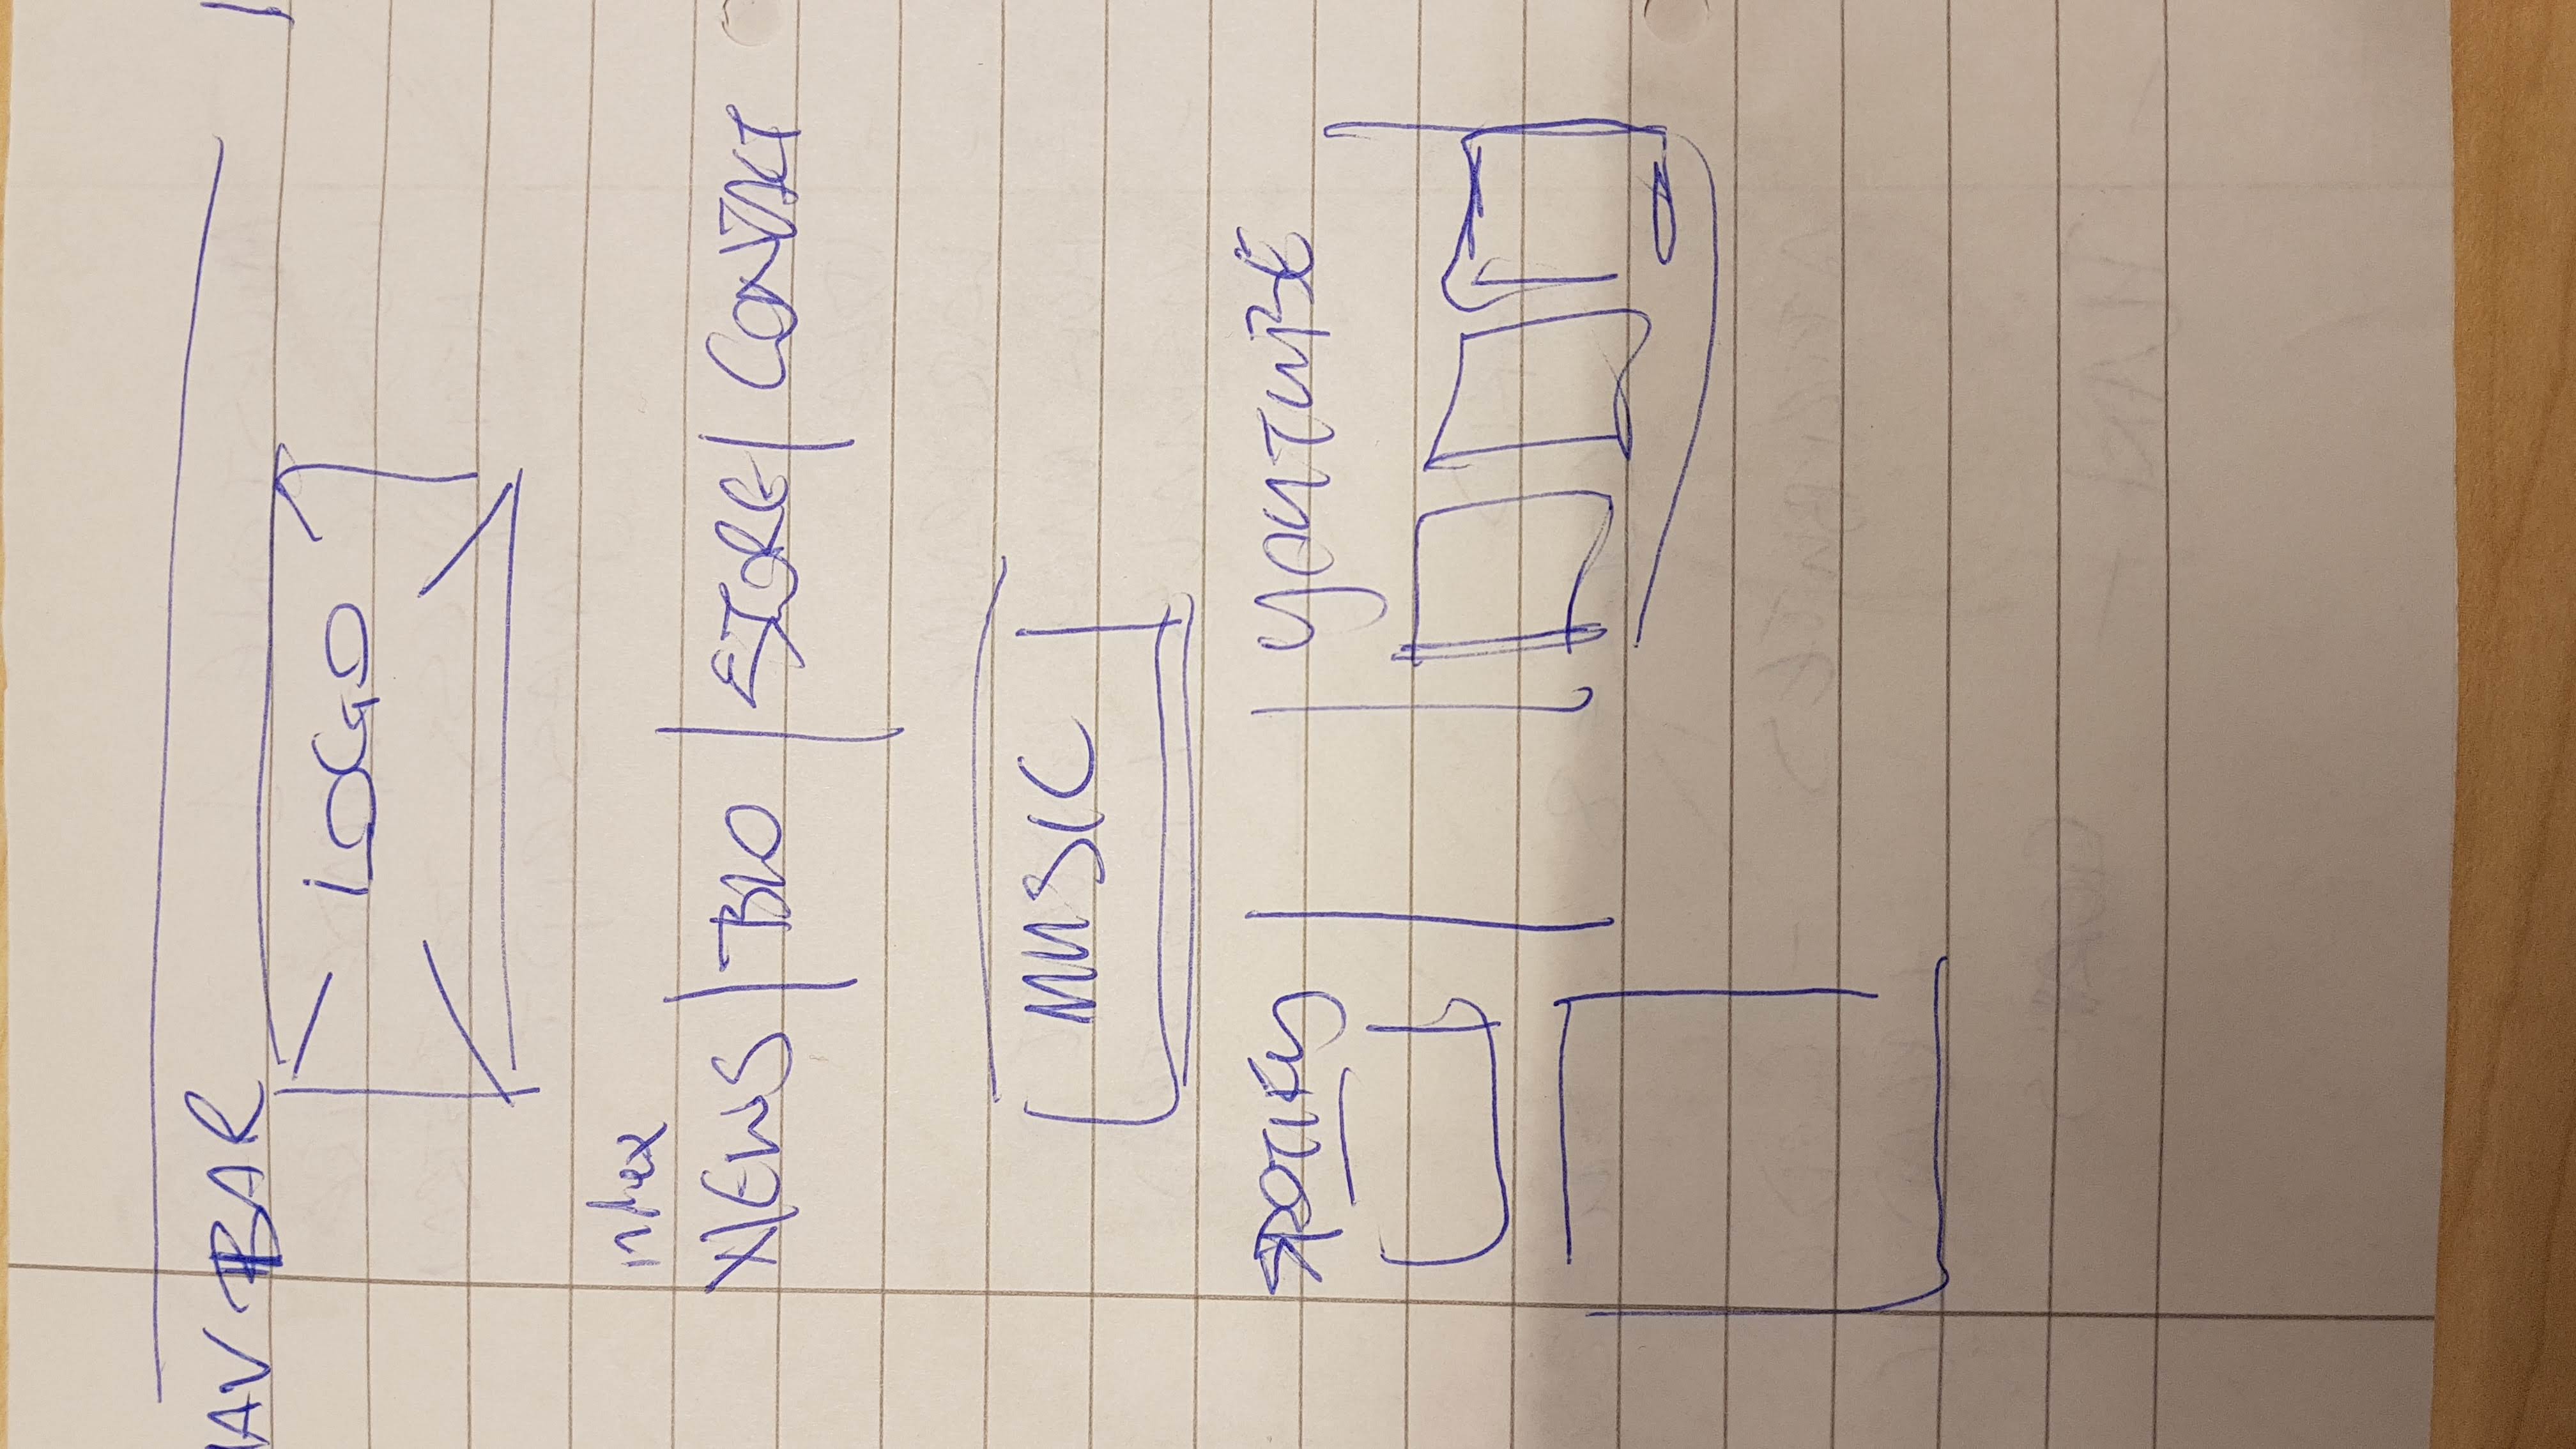 NAV BAR
LOGO
index
NEWS | BIO | STORE | CONTACT
MUSIC
SPOTIFY
YOUTUBE